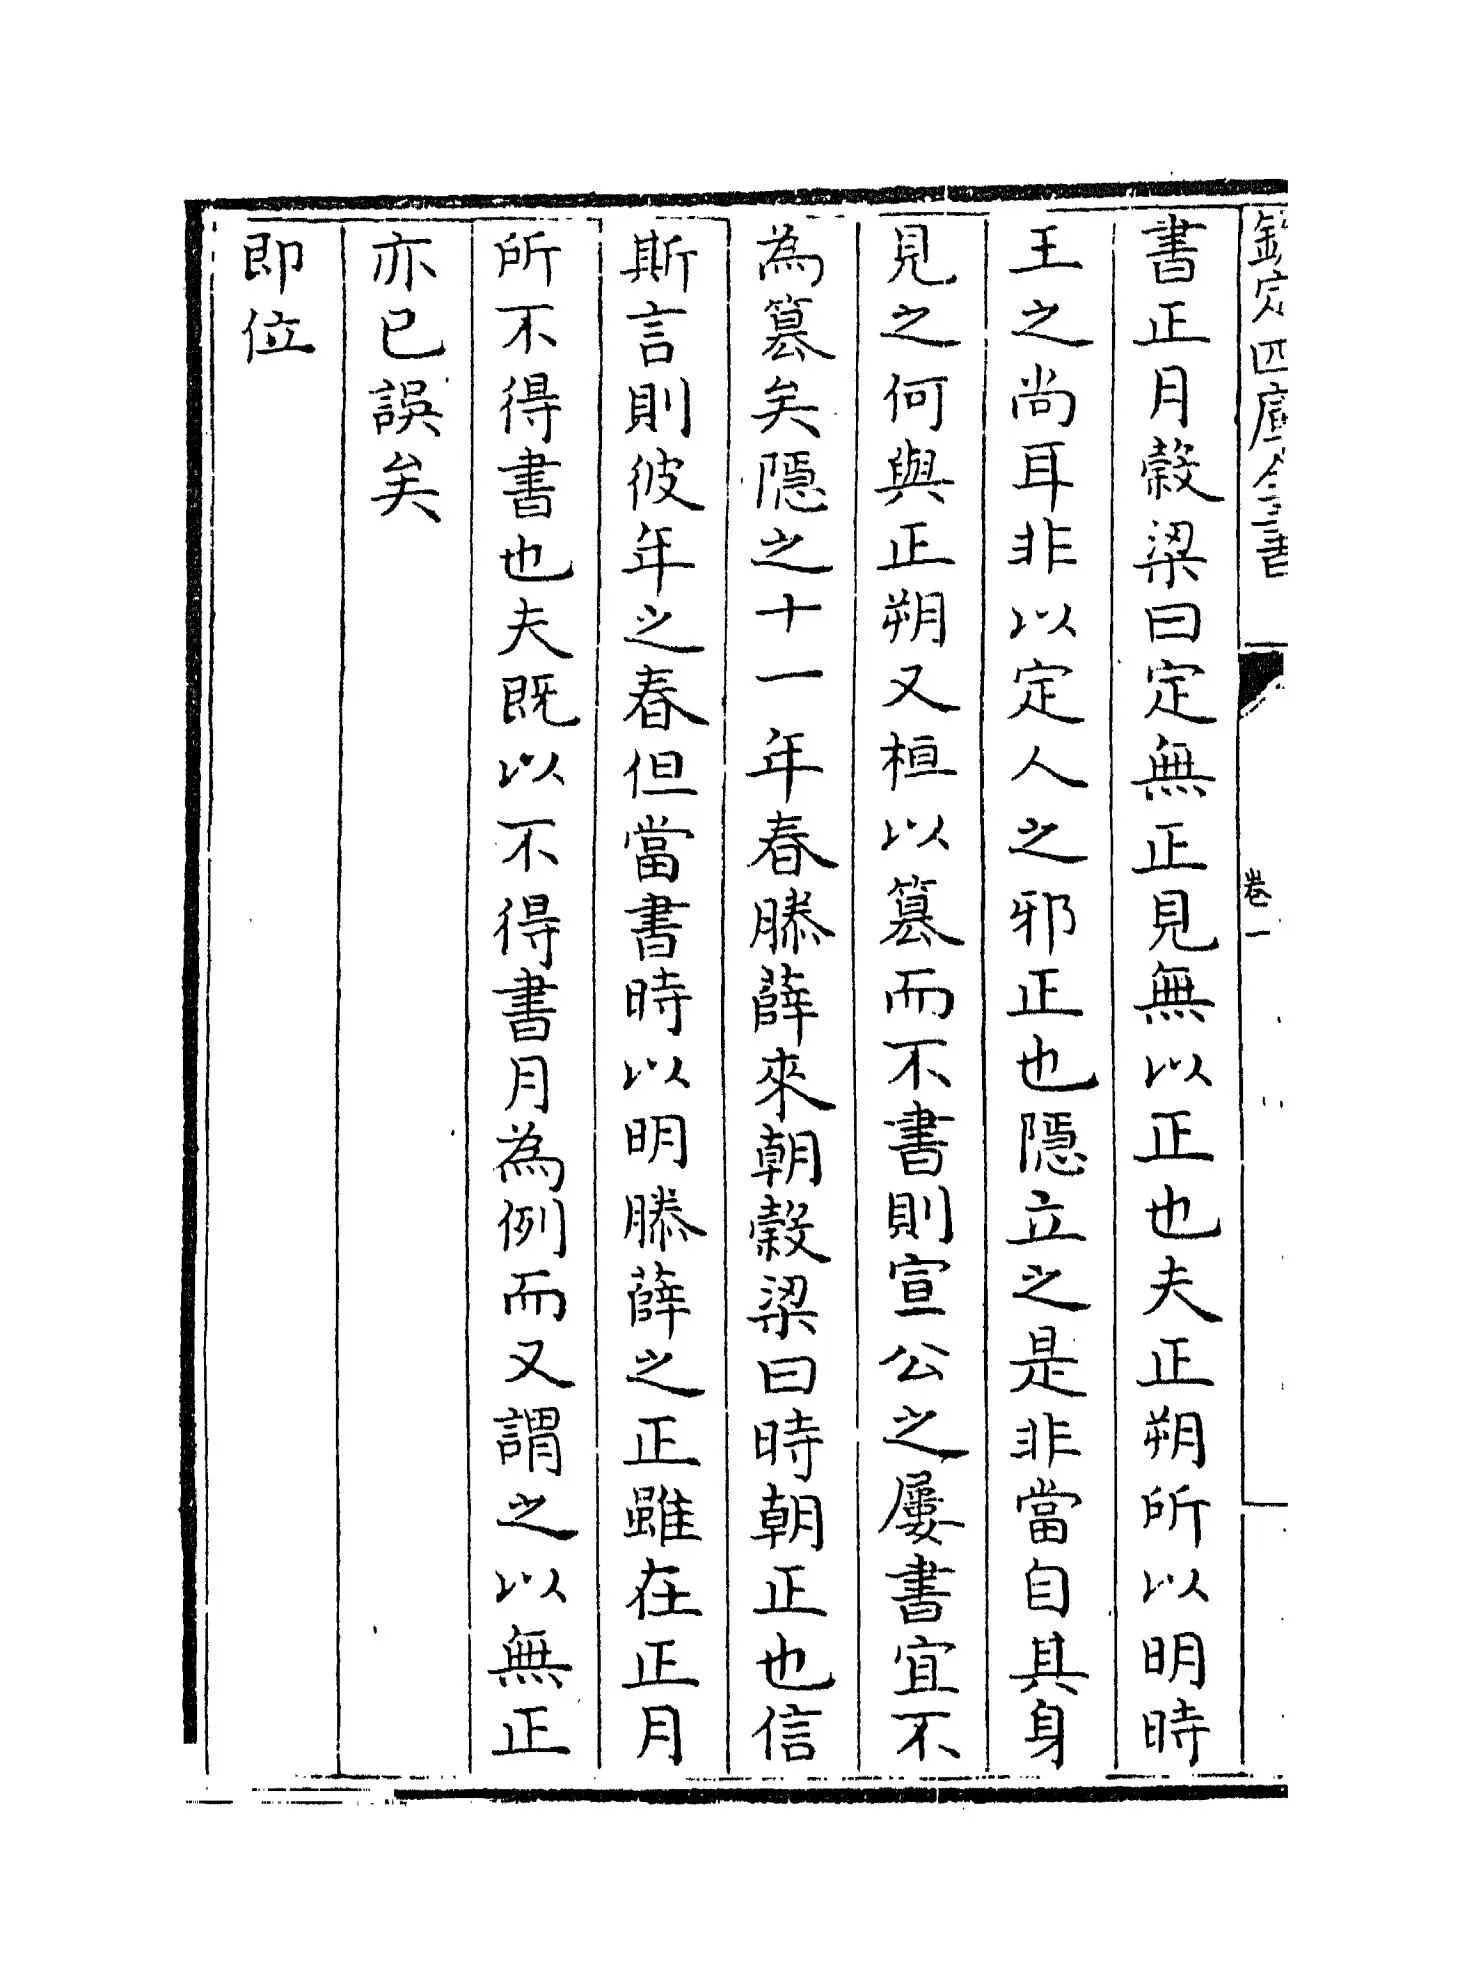 欽定四庫全書
卷一
書正月穀梁曰定無正見無以正也夫正朔所以明時
王之尚耳非以定人之邪正也隱立之是非當自其身
見之何與正朔又桓以簒而不書則宣公之屢書宜不
為簒矣隱之十一年春滕薛來朝穀梁曰時朝正也信
斯言則彼年之春但當書時以明滕薛之正雖在正月
所不得書也夫既以不得書月為例而又謂之以無正
亦已誤矣
即位